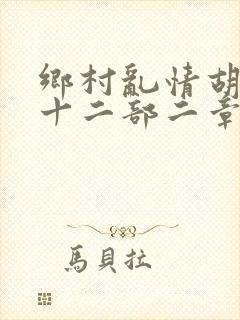 鄉村亂情胡
十二部二章
馬貝拉